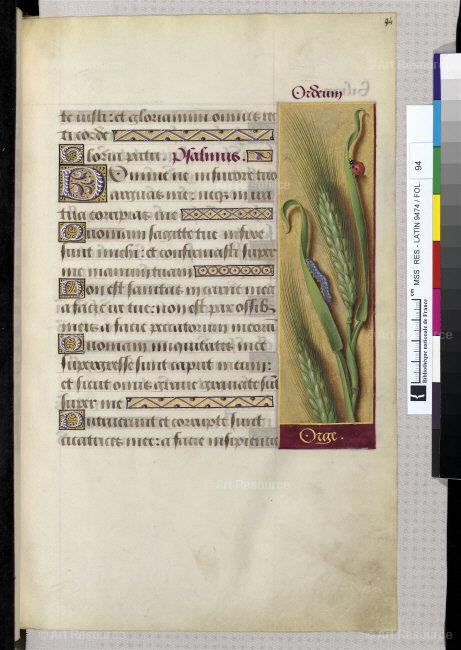 94
Ordeum
te iusti: et gloriamini omnes rec
ti corde
Gloria patri. Psalmus.
Domine ne in furore tuo
arguas me: neq; in ira
tua corripias me
Quoniam sagitte tue infixe
sunt michi: et confirmasti super
me manum tuam
Non est sanitas in carne mea
a facie ire tue: non est pax ossib;
meis a facie peccatorum meorū
Quoniam iniquitates mee
supergresse sunt caput meum:
et sicut onus grave gravate sūt
super me
Putruerunt et corrupte sunt
cicatrices mee: a facie insipientie
Orge.
MSS RES - LATIN 9474 / FOL 94
Bibliothèque nationale de France
cm
© Art Resource